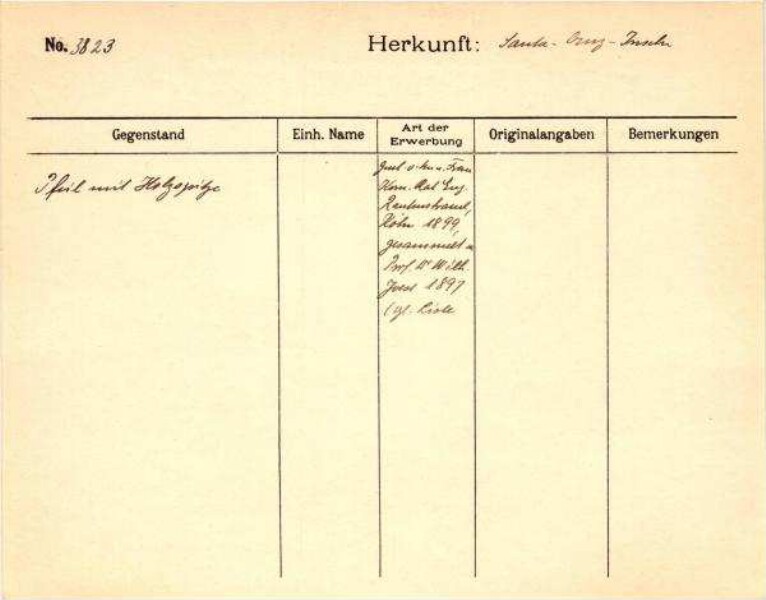 No. 3823 Herkunft: Santa-Cruz-Inseln
Gegenstand Einh. Name Art der Erwerbung Originalangaben Bemerkungen
Pfeil mit Holzspitze
Frau
Kom. Rat Eug.
Rautenstrauch,
Köln 1899,
gesammelt v.
Prof. Dr Wilh.
Joest 1897
Liste